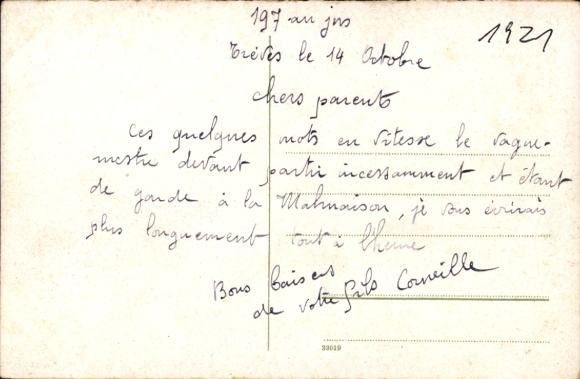 197 au jus
1921
Trèves le 14 Octobre
chers parents
Ces quelques mots en vitesse le vague-
mestre devant partir incessamment et étant
de garde à la Malmaison, je vous écrirais
plus longuement tout à l'heure
Bons baisers
de votre fils Corneille
33019